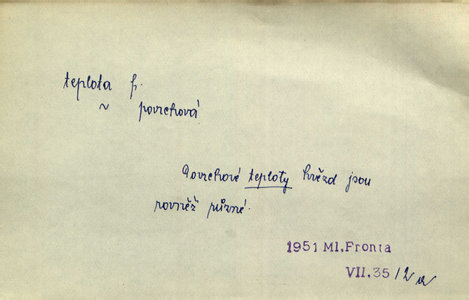 teplota f.
~ povrchová
Povrchové teploty hvězd jsou
rovněž různé.
1951 Ml. Fronta
VII, 35/2